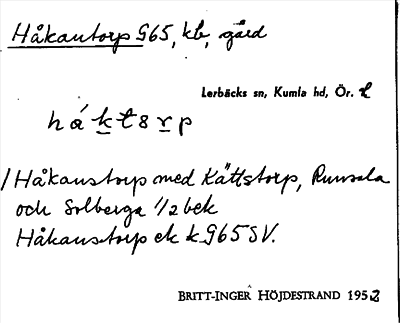 Håkantorp 965, kb, gård
Lerbäcks sn, Kumla hd, Ör. l
hákt8rp
/Håkanstorp med Kättstorp, Runsala
och Solberga 1/2 bek
Håkanstorp ek k. 965 SV.
BRITT-INGER HÖJDESTRAND 1952